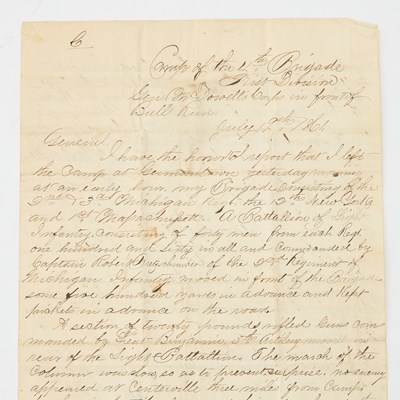 C
Camp of the 4th Brigade
First Division
Gen McDowells Corps in front of
Bull Run
July 1861
General,
I have the honor to report that I left
the Camp at Germantown yesterday morning
at an early hour, my Brigade Consisting of the
2nd & 3d Michigan Regt. the 12th New York
and 1st Massachusetts. A Battalion of Light
Infantry Consisting of forty men from each Regt
one hundred and Sixty in all and Commanded by
Captain Robert of the 2nd Regiment of
Michigan Infantry moved in front of the Brigade
some five hundred yards in advance and kept
pickets in advance on the road.
A section of twenty pounds rifled Guns com
manded by Lieut Benjamin 5th Artilery moved in
rear of the Light Battalion. The march of the
Column was slow, so as to prevent surprise. no enemy
appeared at Centreville three miles from Camp